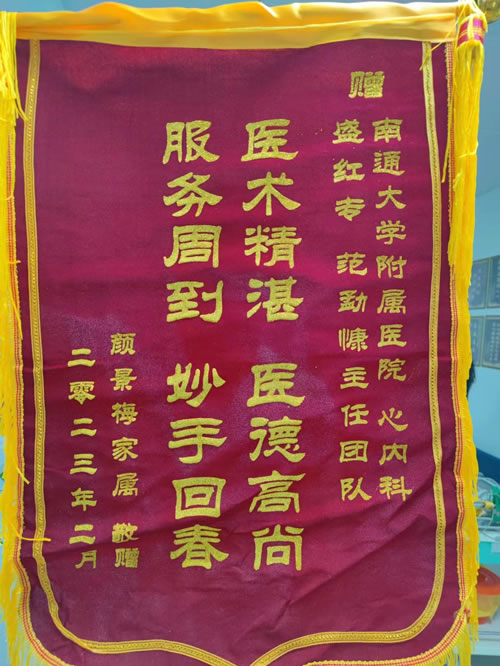 赠
南通大学附属医院 心内科
盛红专 范勐慷主任团队
医术精湛 医德高尚
服务周到 妙手回春
颜景梅家属 敬赠
二零二三年二月